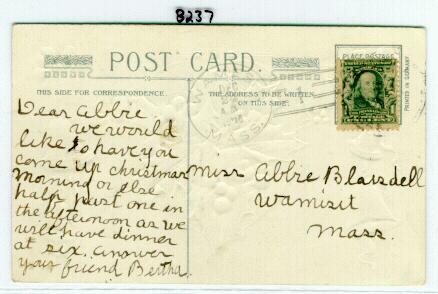 8237
POST CARD.
THIS SIDE FOR CORRESPONDENCE.
THE ADDRESS TO BE WRITTEN
ON THIS SIDE.
PLACE POSTAGE
PRINTED IN GERMANY
MASS
Dear Abbie
we would
like to have you
come up christmas
morning or else
half past one in
the afternoon as we
will have dinner
at six. answer
your friend Bertha.
Miss Abbie Blaisdell
Wamisit
Mass.